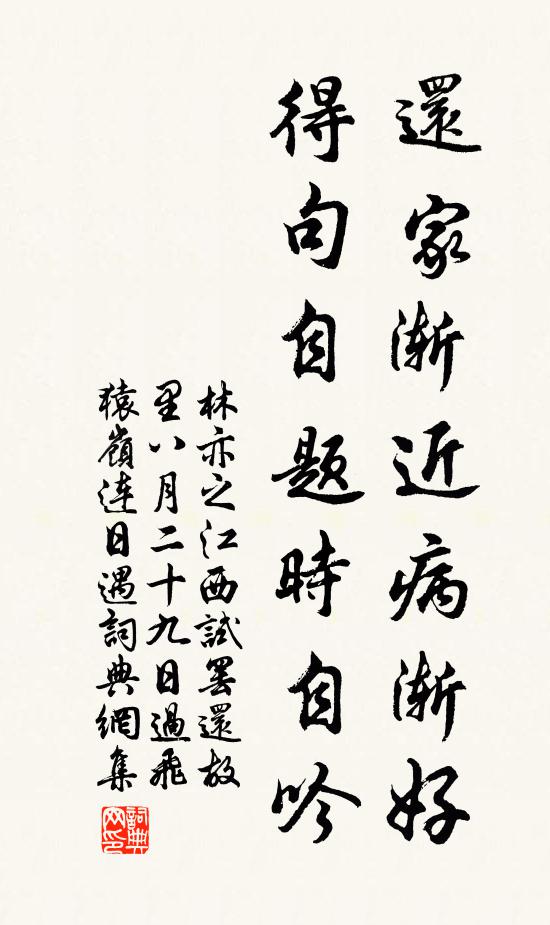 還家漸近病漸好
得句自題時自吟
林亦之江西試罢還故
里八月二十九日過飛
猿嶺連日遇詞典網集
詞典
网印